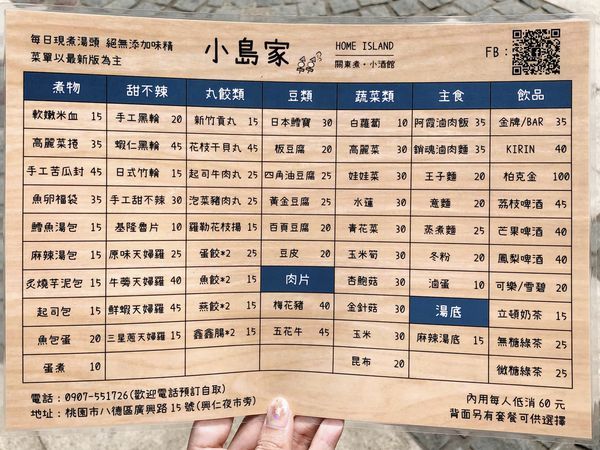 每日現煮湯頭 絕無添加味精
菜單以最新版為主
小島家
HOME ISLAND
關東煮・小酒館
FB：
煮物 甜不辣 丸餃類 豆類 蔬菜類 主食 飲品
軟嫩米血 15 手工黑輪 20 新竹貢丸 15 日本鱈寶 30 白蘿蔔 10 阿霞滷肉飯 35 金牌/BAR 35
高麗菜捲 35 蝦仁黑輪 45 花枝干貝丸 45 板豆腐 20 高麗菜 30 銷魂滷肉麵 35 KIRIN 40
手工苦瓜封 45 日式竹輪 15 起司牛肉丸 25 四角油豆腐 25 娃娃菜 30 王子麵 20 柏克金 100
魚卵福袋 35 手工甜不辣 30 泡菜豬肉丸 25 黃金豆腐 25 水蓮 30 意麵 20 荔枝啤酒 45
鱈魚湯包 15 基隆魯片 10 羅勒花枝揚 15 百頁豆腐 20 青花菜 30 蒸煮麵 25 芒果啤酒 40
麻辣湯包 15 原味天婦羅 25 蛋餃*2 25 豆皮 20 玉米筍 30 冬粉 20 鳳梨啤酒 40
炙燒芋泥包 15 牛蒡天婦羅 40 魚餃*2 15 肉片 杏鮑菇 30 滷蛋 10 可樂/雪碧 20
起司包 15 鮮蝦天婦羅 45 燕餃*2 15 梅花豬 40 金針菇 30 湯底 立頓奶茶 15
魚包蛋 20 三星蔥天婦羅 15 鑫鑫腸*2 15 五花牛 45 玉米 30 麻辣湯底 15 無糖綠茶 25
蛋煮 10 昆布 20 微糖綠茶 25
電話：0907-551726(歡迎電話預訂自取)
地址：桃園市八德區廣興路15號(興仁夜市旁)
內用每人低消60元
背面另有套餐可供選擇